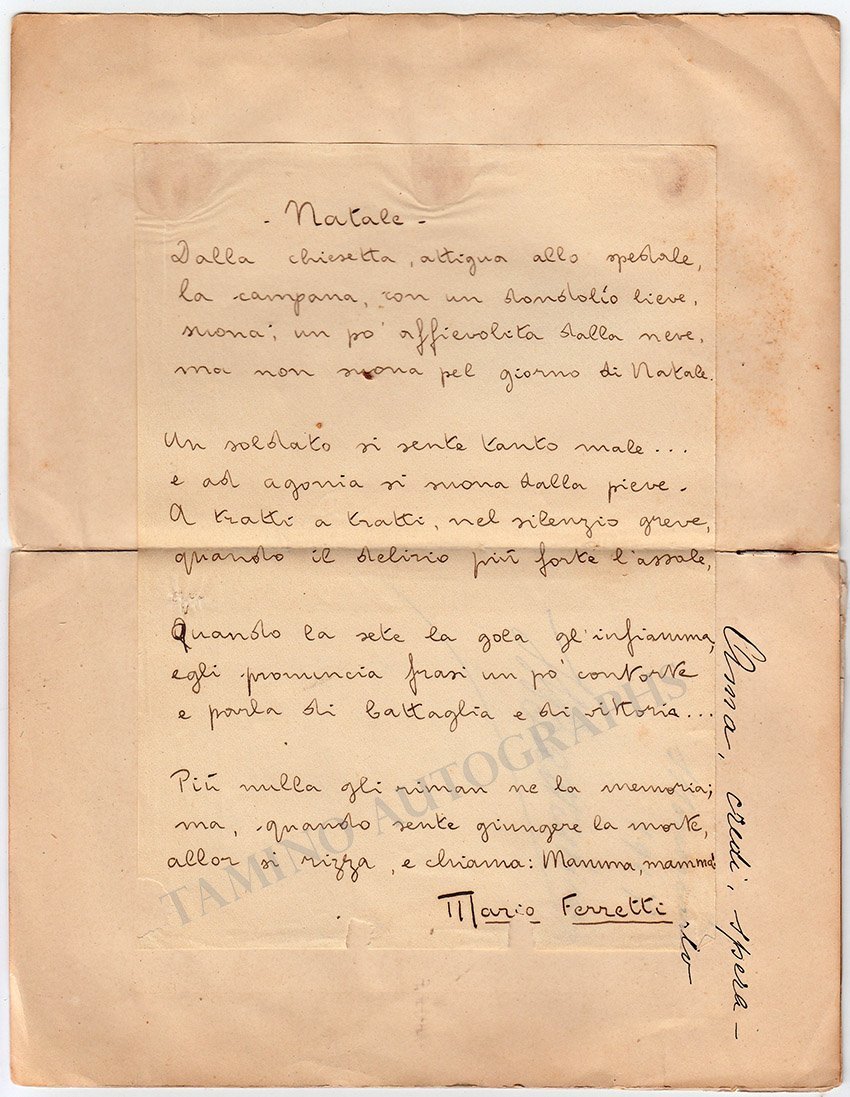 - Natale -
Dalla chiesetta, attigua allo spedale,
la campana, con un dondolío lieve,
suona; un po' affievolita dalla neve,
ma non suona pel giorno di Natale.
Un soldato si sente tanto male...
e ad agonia si suona dalla pieve.
A tratti a tratti, nel silenzio greve,
quando il delirio più forte l'assale,
Quando la sete la gola gl'infiamma,
egli pronuncia frasi un po' contorte
e parla di battaglia e di vittoria...
Più nulla gli riman ne la memoria;
ma, quando sente giungere la morte,
allor si rizza, e chiama: Mamma, mamma!
Mario Ferretti
Ama, credi, spera -
TAMINO AUTOGRAPHS